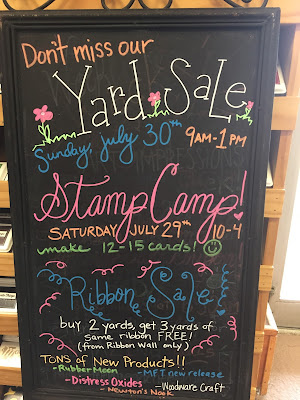 Don't miss our
Yard Sale
Sunday, July 30th 9AM-1PM
Stamp Camp!
SATURDAY JULY 29th 10-4
make 12-15 cards!
Ribbon Sale!
buy 2 yards, get 3 yards of
same ribbon FREE!
(from Ribbon Wall only!)
TONS of New Products!!
-Rubber Moon -MFT new release
-Distress Oxides -Woodware Craft
-Newton's Nook